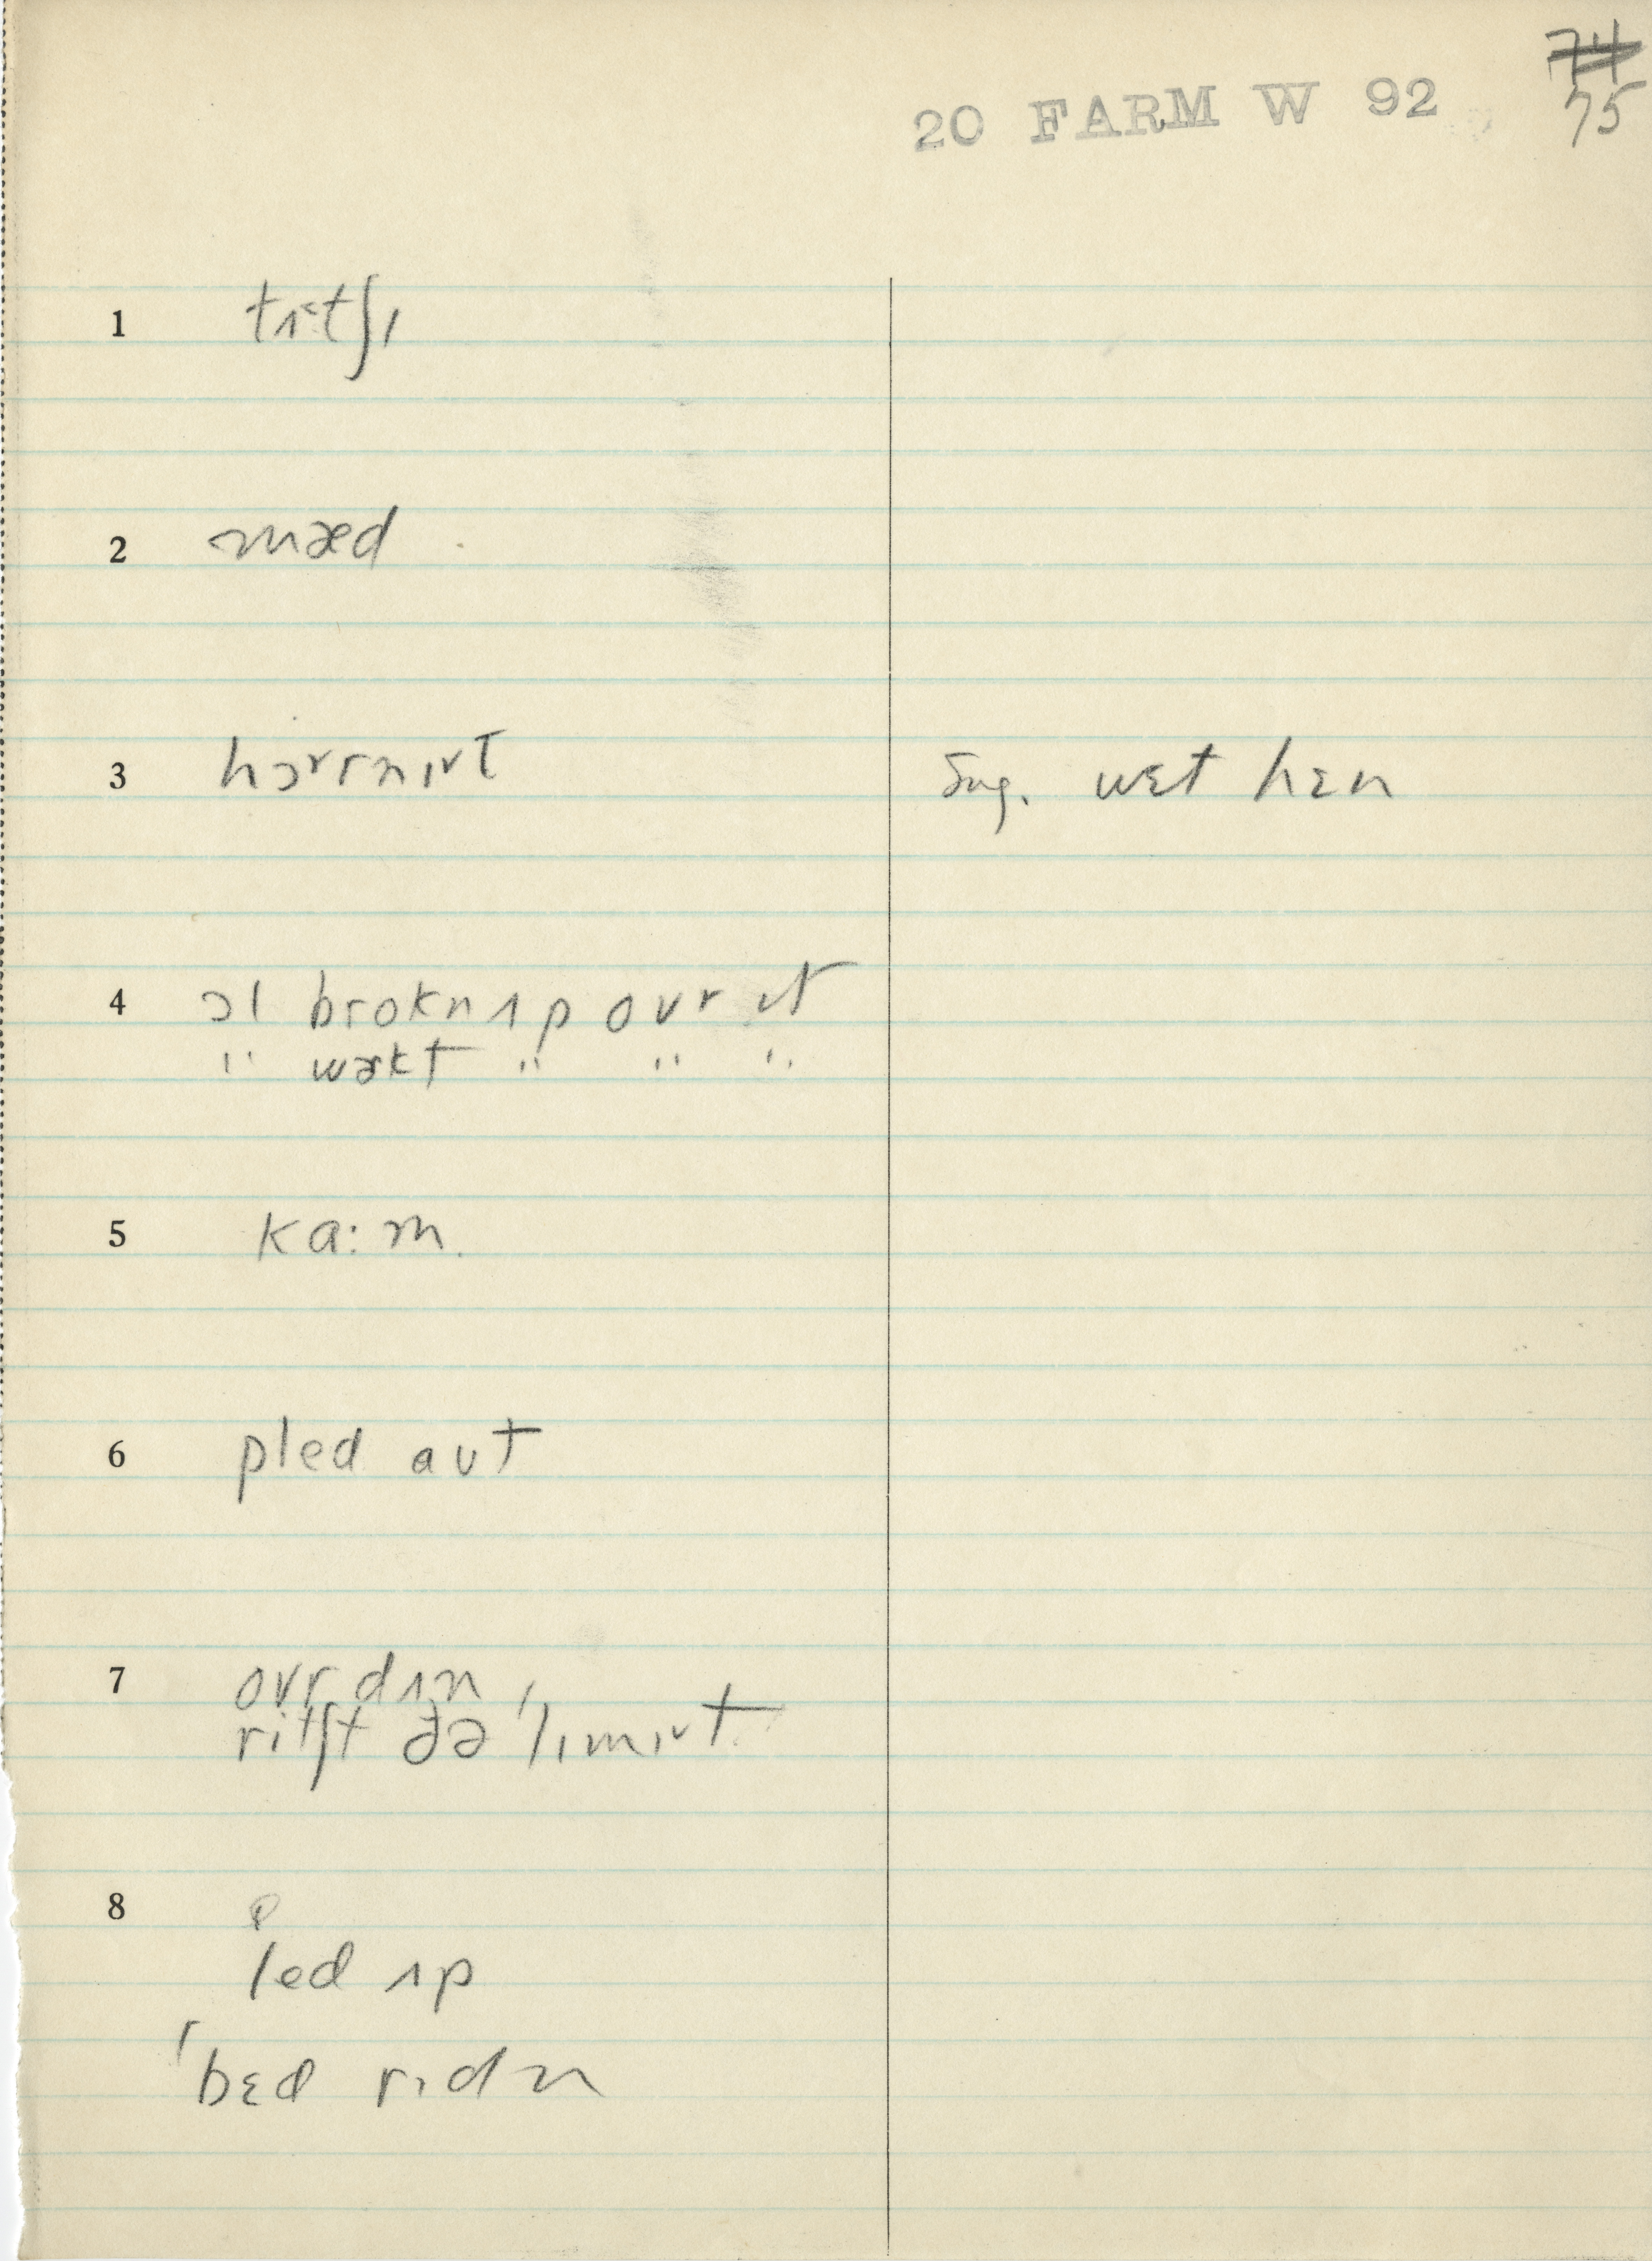 74
20 FARM W 92 75
1 tʌ˂tʃɪ
2 mæd
3 hɔrrnɪvt sug. wɛt hɛn
4 ɔl brokn ʌp ovr ɪt
" wɚkt " " "
5 ka:m.
6 pled aʊt
7 ovr dʌn
ritʃt ðə 'lɪmɪvt
8 P
led ʌp
'bɛd rɪdn